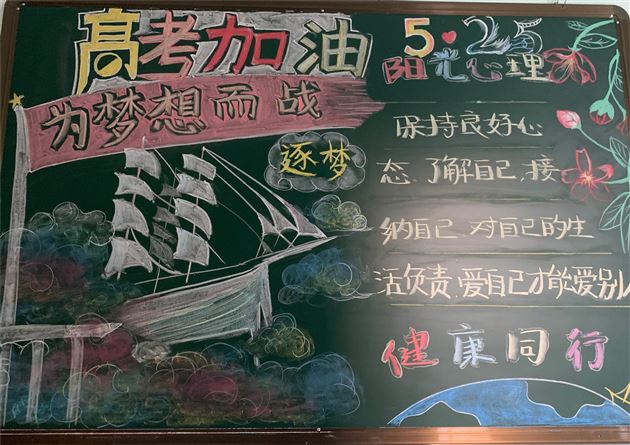 高考加油
为梦想而战
逐梦
5.25
阳光心理
保持良好心
态.了解自己,接
纳自己.对自己的生
活负责.爱自己才能爱别
健康同行